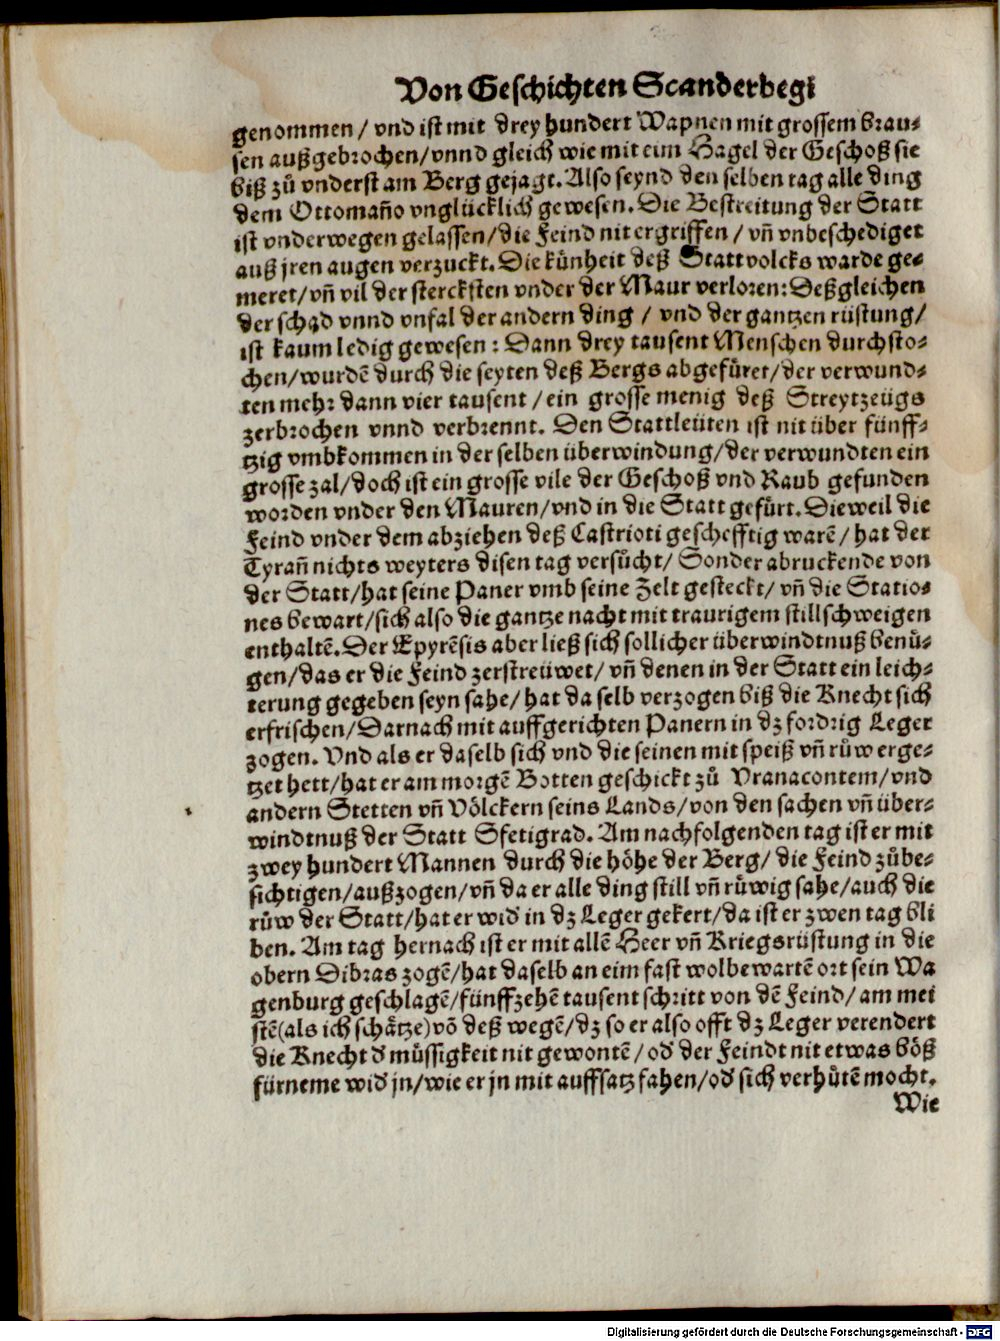 Von Geschichten Scanderbegi
genommen / vnd ist mit drey hundert Wapnen mit grossem brau-
sen außgebrochen/vnnd gleich wie mit eim Hagel der Geschoß sie
biß zů vnderst am Berg gejagt. Also seynd den selben tag alle ding
dem Ottomaño vnglücklich gewesen. Die Bestreitung der Statt
ist vnderwegen gelassen/die Feind nit ergriffen / vñ vnbeschediget
auß jren augen verzuckt. Die künheit deß Stattvolcks warde ge-
meret/vñ vil der stercksten vnder der Maur verloren: Deßgleichen
der schad vnnd vnfal der andern ding / vnd der gantzen rüstung/
ist kaum ledig gewesen: Dann drey tausent Menschen durchsto-
chen/wurdē durch die seyten deß Bergs abgefüret/der verwund-
ten mehr dann vier tausent / ein grosse menig deß Streytzeügs
zerbrochen vnnd verbrennt. Den Stattleüten ist nit über fünff-
tzig vmbkommen in der selben überwindung/der verwundten ein
grosse zal/doch ist ein grosse vile der Geschoß vnd Raub gefunden
worden vnder den Mauren/vnd in die Statt gefürt. Dieweil die
Feind vnder dem abziehen deß Castrioti geschefftig warē/ hat der
Tyrañ nichts weyters disen tag versůcht/ Sonder abruckende von
der Statt/hat seine Paner vmb seine Zelt gesteckt/ vñ die Statio-
nes bewart/sich also die gantze nacht mit traurigem stillschweigen
enthaltē. Der Epyrēsis aber ließ sich sollicher überwindtnuß benů-
gen/das er die Feind zerstreüwet/ vñ denen in der Statt ein leich-
terung gegeben seyn sahe/ hat da selb verzogen biß die Knecht sich
erfrischen/Darnach mit auffgerichten Panern in dz fordrig Leger
zogen. Vnd als er daselb sich vnd die seinen mit speiß vñ růw erge-
tzet hett/hat er am morgē Botten geschickt zů Vranacontem/vnd
andern Stetten vñ Völckern seins Lands/von den sachen vñ über-
windtnuß der Statt Sfetigrad. Am nachfolgenden tag ist er mit
zwey hundert Mannen durch die höhe der Berg/ die Feind zůbe-
sichtigen/außzogen/vñ da er alle ding still vñ růwig sahe/auch die
růw der Statt/hat er wid in dz Leger gekert/da ist er zwen tag bli
ben. Am tag hernach ist er mit allē Heer vñ Kriegsrüstung in die
obern Dibras zogē/hat daselb an eim fast wolbewartē ort sein Wa
genburg geschlagē/fünffzehē tausent schritt von dē Feind/ am mei
stē(als ich schätze)võ deß wegē/dz so er also offt dz Leger verendert
die Knecht d müssigkeit nit gewontē / od der Feindt nit etwas böß
fürneme wid jn/wie er jn mit auffsatz fahen/od sich verhůtē mocht.
Wie
Digitalisierung gefördert durch die Deutsche Forschungsgemeinschaft - DFG